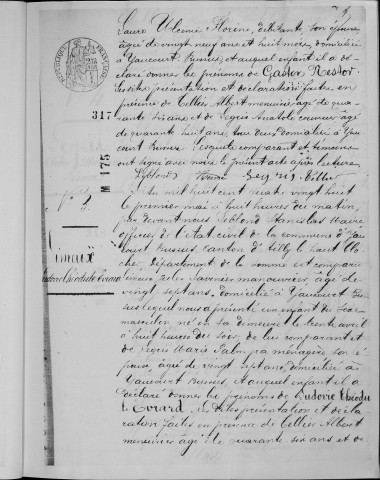 Laure Ulcenie Florine, débitante, son épouse
âgée de vingt neuf ans et huit mois, domiciliée
à Yaucourt Bussus, et auquel enfant il a dé
claré donner les prénoms de Gaston Nestor
Les dites présentation et déclaration faites en
présence de Tellier Albert menuisier âgé de qua
rante six ans et de Segris Anatole couvreur âgé
317
de quarante huit ans, tous deux domiciliés à Yau
court Bussus. Lesquels comparant et témoins
ont signé avec nous le présent acte après lecture
M 175
Leblond Segris Tellier
L'an mil huit cent quatre vingt huit
le premier mai à huit heures du matin,
par devant nous Leblond Stanislas Maire
officier de l'état civil de la commune d'Yau
court Bussus, canton d'Ailly le haut Clo
cher Département de la Somme est comparu
manouvrier, âgé de
vingt sept ans, domicilié à Yaucourt Bus
sus lequel nous a présenté un enfant du sexe
masculin né en sa demeure le trente avril
à huit heures du soir, de lui comparant et
de Segris Marie Palmyra ménagère son é
pouse, âgée de vingt sept ans, domiciliée à
Yaucourt Bussus, et auquel enfant il a
déclaré donner les prénoms de Ludovic Théodu
le Evrard. Les dites présentation et décla
ration faites en présence de Tellier Albert
menuisier âgé de quarante six ans et de